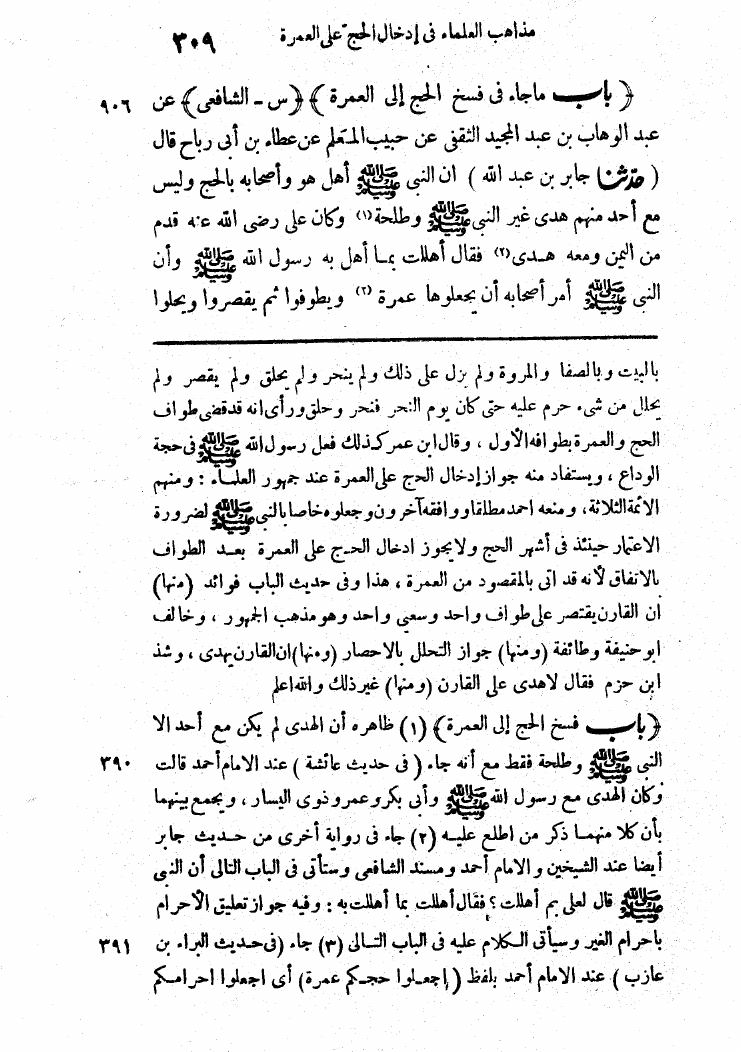 مذاهب العلماء فى إدخال الحج على العمرة ٣٠٩
﴿ باب ماجاء فى فسخ الحج إلى العمرة ﴾ (س - الشافعى) عن ٩٠٦
عبد الوهاب بن عبد المجيد الثقفى عن حبيب المعلم عن عطاء بن أبى رباح قال
( حدثنا جابر بن عبد الله ) ان النبى ﷺ أهل هو وأصحابه بالحج وليس
مع أحد منهم هدى غير النبى ﷺ وطلحة (١) وكان على رضى الله عنه قدم
من اليمن ومعه هدى (٢) فقال أهللت بما أهل به رسول الله ﷺ وأن
النبى ﷺ أمر أصحابه أن يجعلوها عمرة (٣) ويطوفوا ثم يقصروا ويحلوا
بالبيت وبالصفا والمروة ولم يزل على ذلك ولم ينحر ولم يحلق ولم يقصر ولم
يحلل من شىء حرم عليه حتى كان يوم النحر فنحر وحلق ورأى انه قد قضى طواف
الحج والعمرة بطوافه الأول ، وقال ابن عمر كذلك فعل رسول الله ﷺ فى حجة
الوداع ، ويستفاد منه جواز إدخال الحج على العمرة عند جمهور العلماء : ومنهم
الائمة الثلاثة ، ومنعه احمد مطلقا ووافقه آخرون وجعلوه خاصا بالنبى ﷺ لضرورة
الاعتمار حينئذ فى أشهر الحج ولا يجوز ادخال الحج على العمرة بعد الطواف
بالاتفاق لأنه قد اتى بالمقصود من العمرة ، هذا وفى حديث الباب فوائد (منها)
ان القارن يقتصر على طواف واحد وسعى واحد وهو مذهب الجمهور ، وخالف
ابو حنيفة وطائفة (ومنها) جواز التحلل بالاحصار (ومنها) ان القارن يهدى ، وشذ
ابن حزم فقال لا هدى على القارن (ومنها) غير ذلك والله اعلم
﴿باب فسخ الحج إلى العمرة﴾ (١) ظاهره أن الهدى لم يكن مع أحد الا
النبى ﷺ وطلحة فقط مع أنه جاء ( فى حديث عائشة ) عند الامام أحمد قالت ٣٩٠
وكان الهدى مع رسول الله ﷺ وأبى بكر وعمر وذوى اليسار ، ويجمع بينهما
بأن كلا منهما ذكر من اطلع عليه (٢) جاء فى رواية أخرى من حديث جابر
أيضا عند الشيخين والامام أحمد ومسند الشافعى وستأتى فى الباب التالى أن النبى
ﷺ قال لعلى بم أهللت ؟ فقال أهللت بما أهللت به : وفيه جواز تعليق الأحرام
باحرام الغير وسيأتى الكلام عليه فى الباب التالى (٣) جاء (فى حديث البراء بن ٣٩١
عازب ) عند الامام أحمد بلفظ ( إجعلوا حجكم عمرة) أى اجعلوا احرامكم